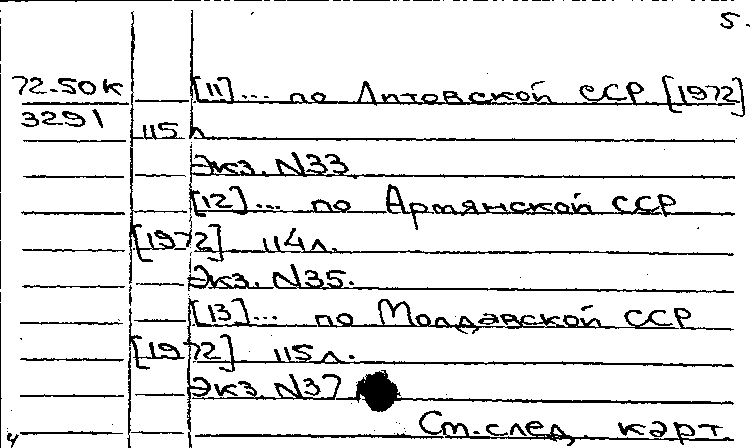 5.
72.50к [11]... по Литовской ССР [1972]
3291 115 л
Экз. N33
[12]... по Армянской ССР
[1972] 114л.
Экз. N35.
[13]... по Молдавской ССР
[1972] 115л.
Экз. N37
См.след карт